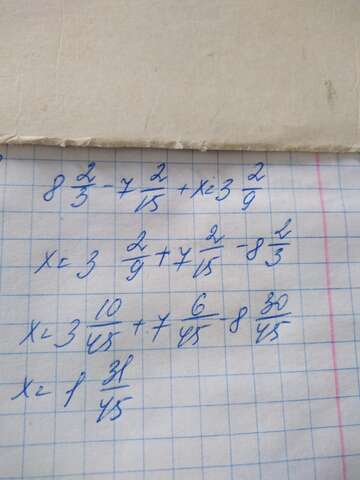 8 2/3 - 7 2/15 + x = 3 2/9
x = 3 2/9 + 7 2/15 - 8 2/3
x = 3 10/45 + 7 6/45 - 8 30/45
x = 1 31/45